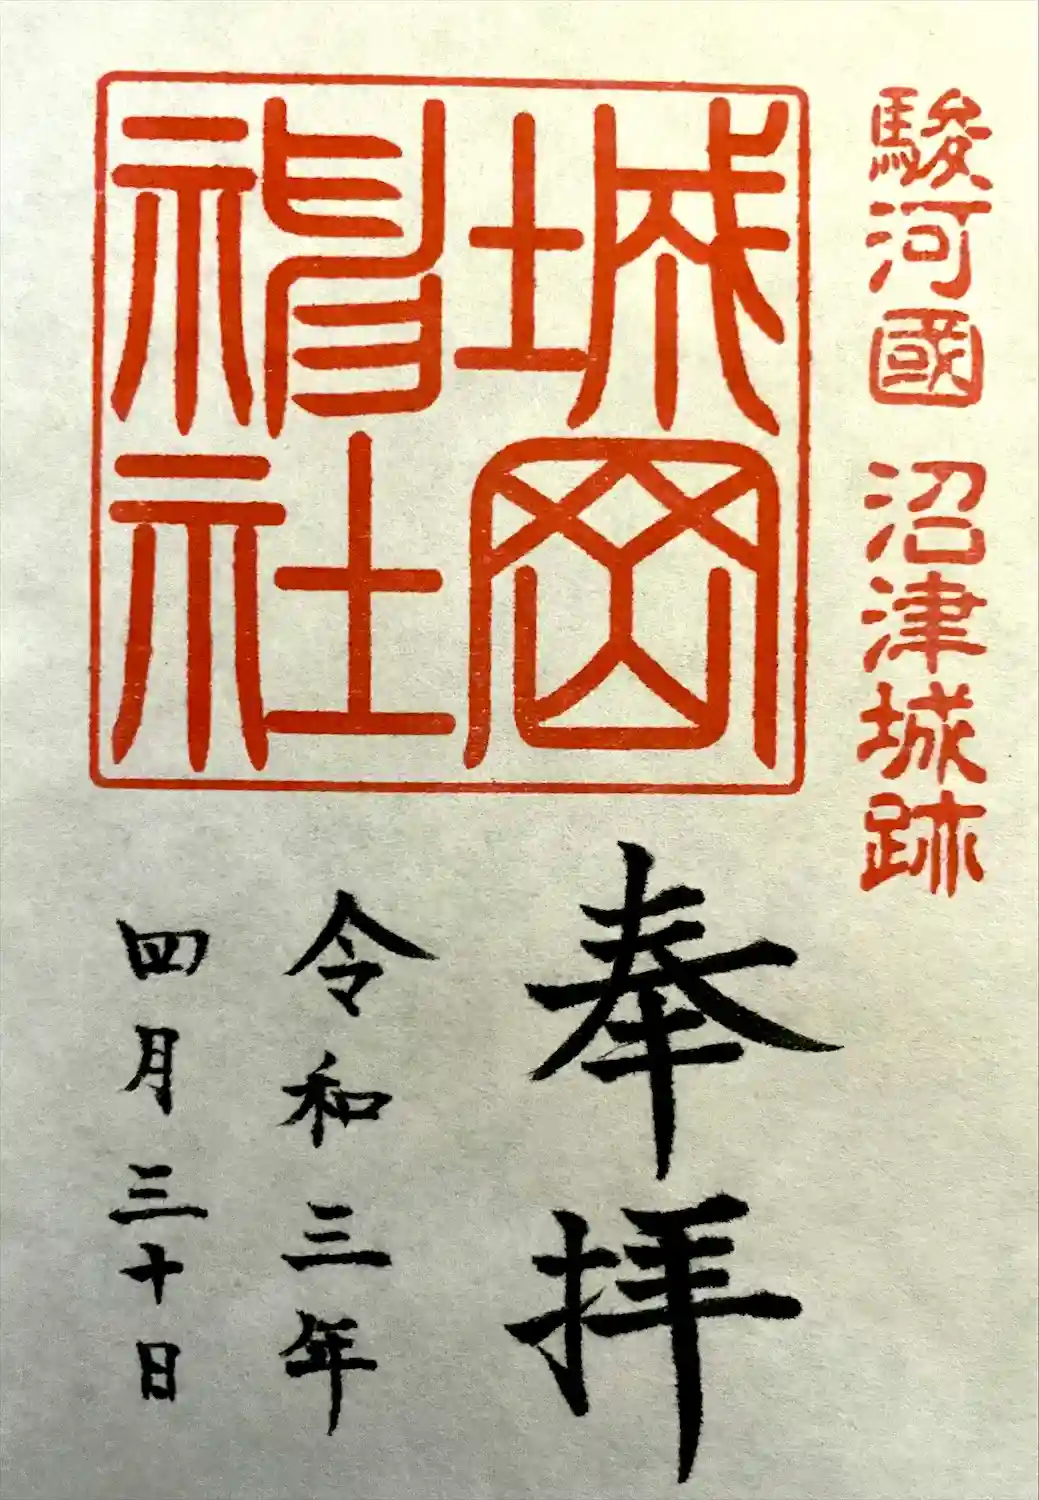 駿河國 沼津城跡
城岡
神社
奉拝
令和三年
四月三十日